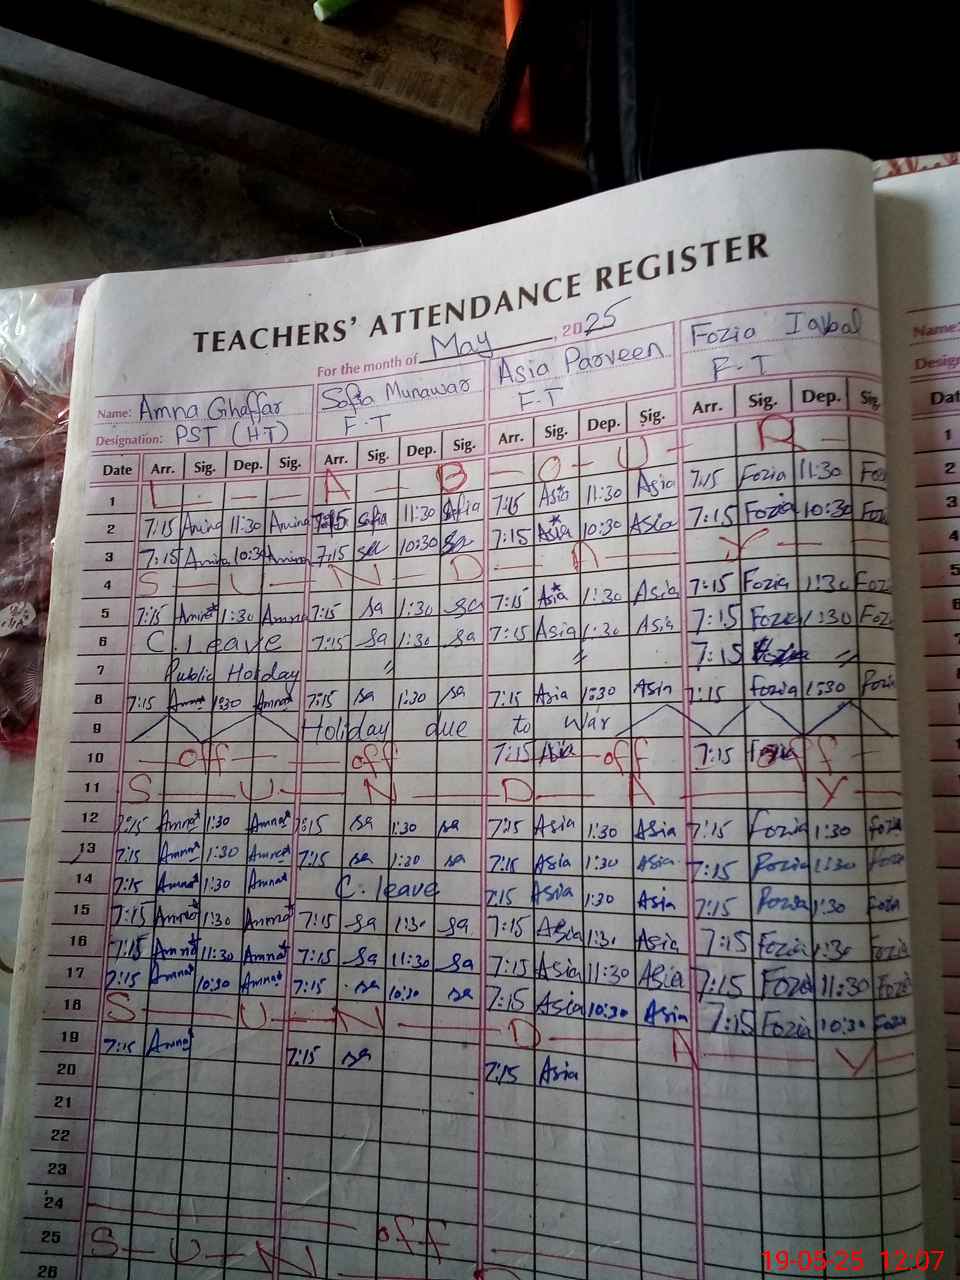 TEACHERS' ATTENDANCE REGISTER
For the month of May, 2025
Name: Amna Ghaffar Safia Munawar Asia Parveen Fozia Iqbal
Designation: PST (HT) F.T F.T F.T
Date Arr. Sig. Dep. Sig. Arr. Sig. Dep. Sig. Arr. Sig. Dep. Sig. Arr. Sig. Dep. Sig.
1 L - - A - B - O - U - R -
2 7:15 Amna 11:30 Amna 7:15 Safia 11:30 Safia 7:15 Asia 11:30 Asia 7:15 Fozia 11:30 Fo
3 7:15 Amna 10:30 Amna 7:15 sa 10:30 sa 7:15 Asia 10:30 Asia 7:15 Fozia 10:30 Foz
4 S - U - N - D - A - Y -
5 7:15 Amna 1:30 Amna 7:15 sa 1:30 sa 7:15 Asia 1:30 Asia 7:15 Fozia 1:30 Foz
6 C. leave 7:15 sa 1:30 sa 7:15 Asia 1:30 Asia 7:15 Fozia 1:30 Foz
7 Public Holiday // // 7:15 //
8 7:15 Amna 1:30 Amna 7:15 sa 1:30 sa 7:15 Asia 1:30 Asia 7:15 Fozia 1:30 Fozia
9 Holiday due to war
10 - off - off 7:15 Asia - off 7:15 off -
11 S - U - N - D - A - Y
12 7:15 Amna 1:30 Amna 7:15 sa 1:30 sa 7:15 Asia 1:30 Asia 7:15 Fozia 1:30 Fozia
13 7:15 Amna 1:30 Amna 7:15 sa 1:30 sa 7:15 Asia 1:30 Asia 7:15 Fozia 1:30 Fozia
14 7:15 Amna 1:30 Amna C. leave 7:15 Asia 1:30 Asia 7:15 Fozia 1:30 Fozia
15 7:15 Amna 1:30 Amna 7:15 sa 1:30 sa 7:15 Asia 1:30 Asia 7:15 Fozia 1:30 Fozia
16 7:15 Amna 11:30 Amna 7:15 sa 11:30 sa 7:15 Asia 11:30 Asia 7:15 Fozia 11:30 Fozia
17 7:15 Amna 10:30 Amna 7:15 sa 10:30 sa 7:15 Asia 10:30 Asia 7:15 Fozia 10:30 Fozia
18 S - U - N - D - A - Y
19 7:15 Amna 7:15 sa 7:15 Asia
20
21
22
23
24 off
25 S - U - N
26
Name:
Design
Dat
1
2
3
4
5
6
7
8
9
19-05-25 12:07